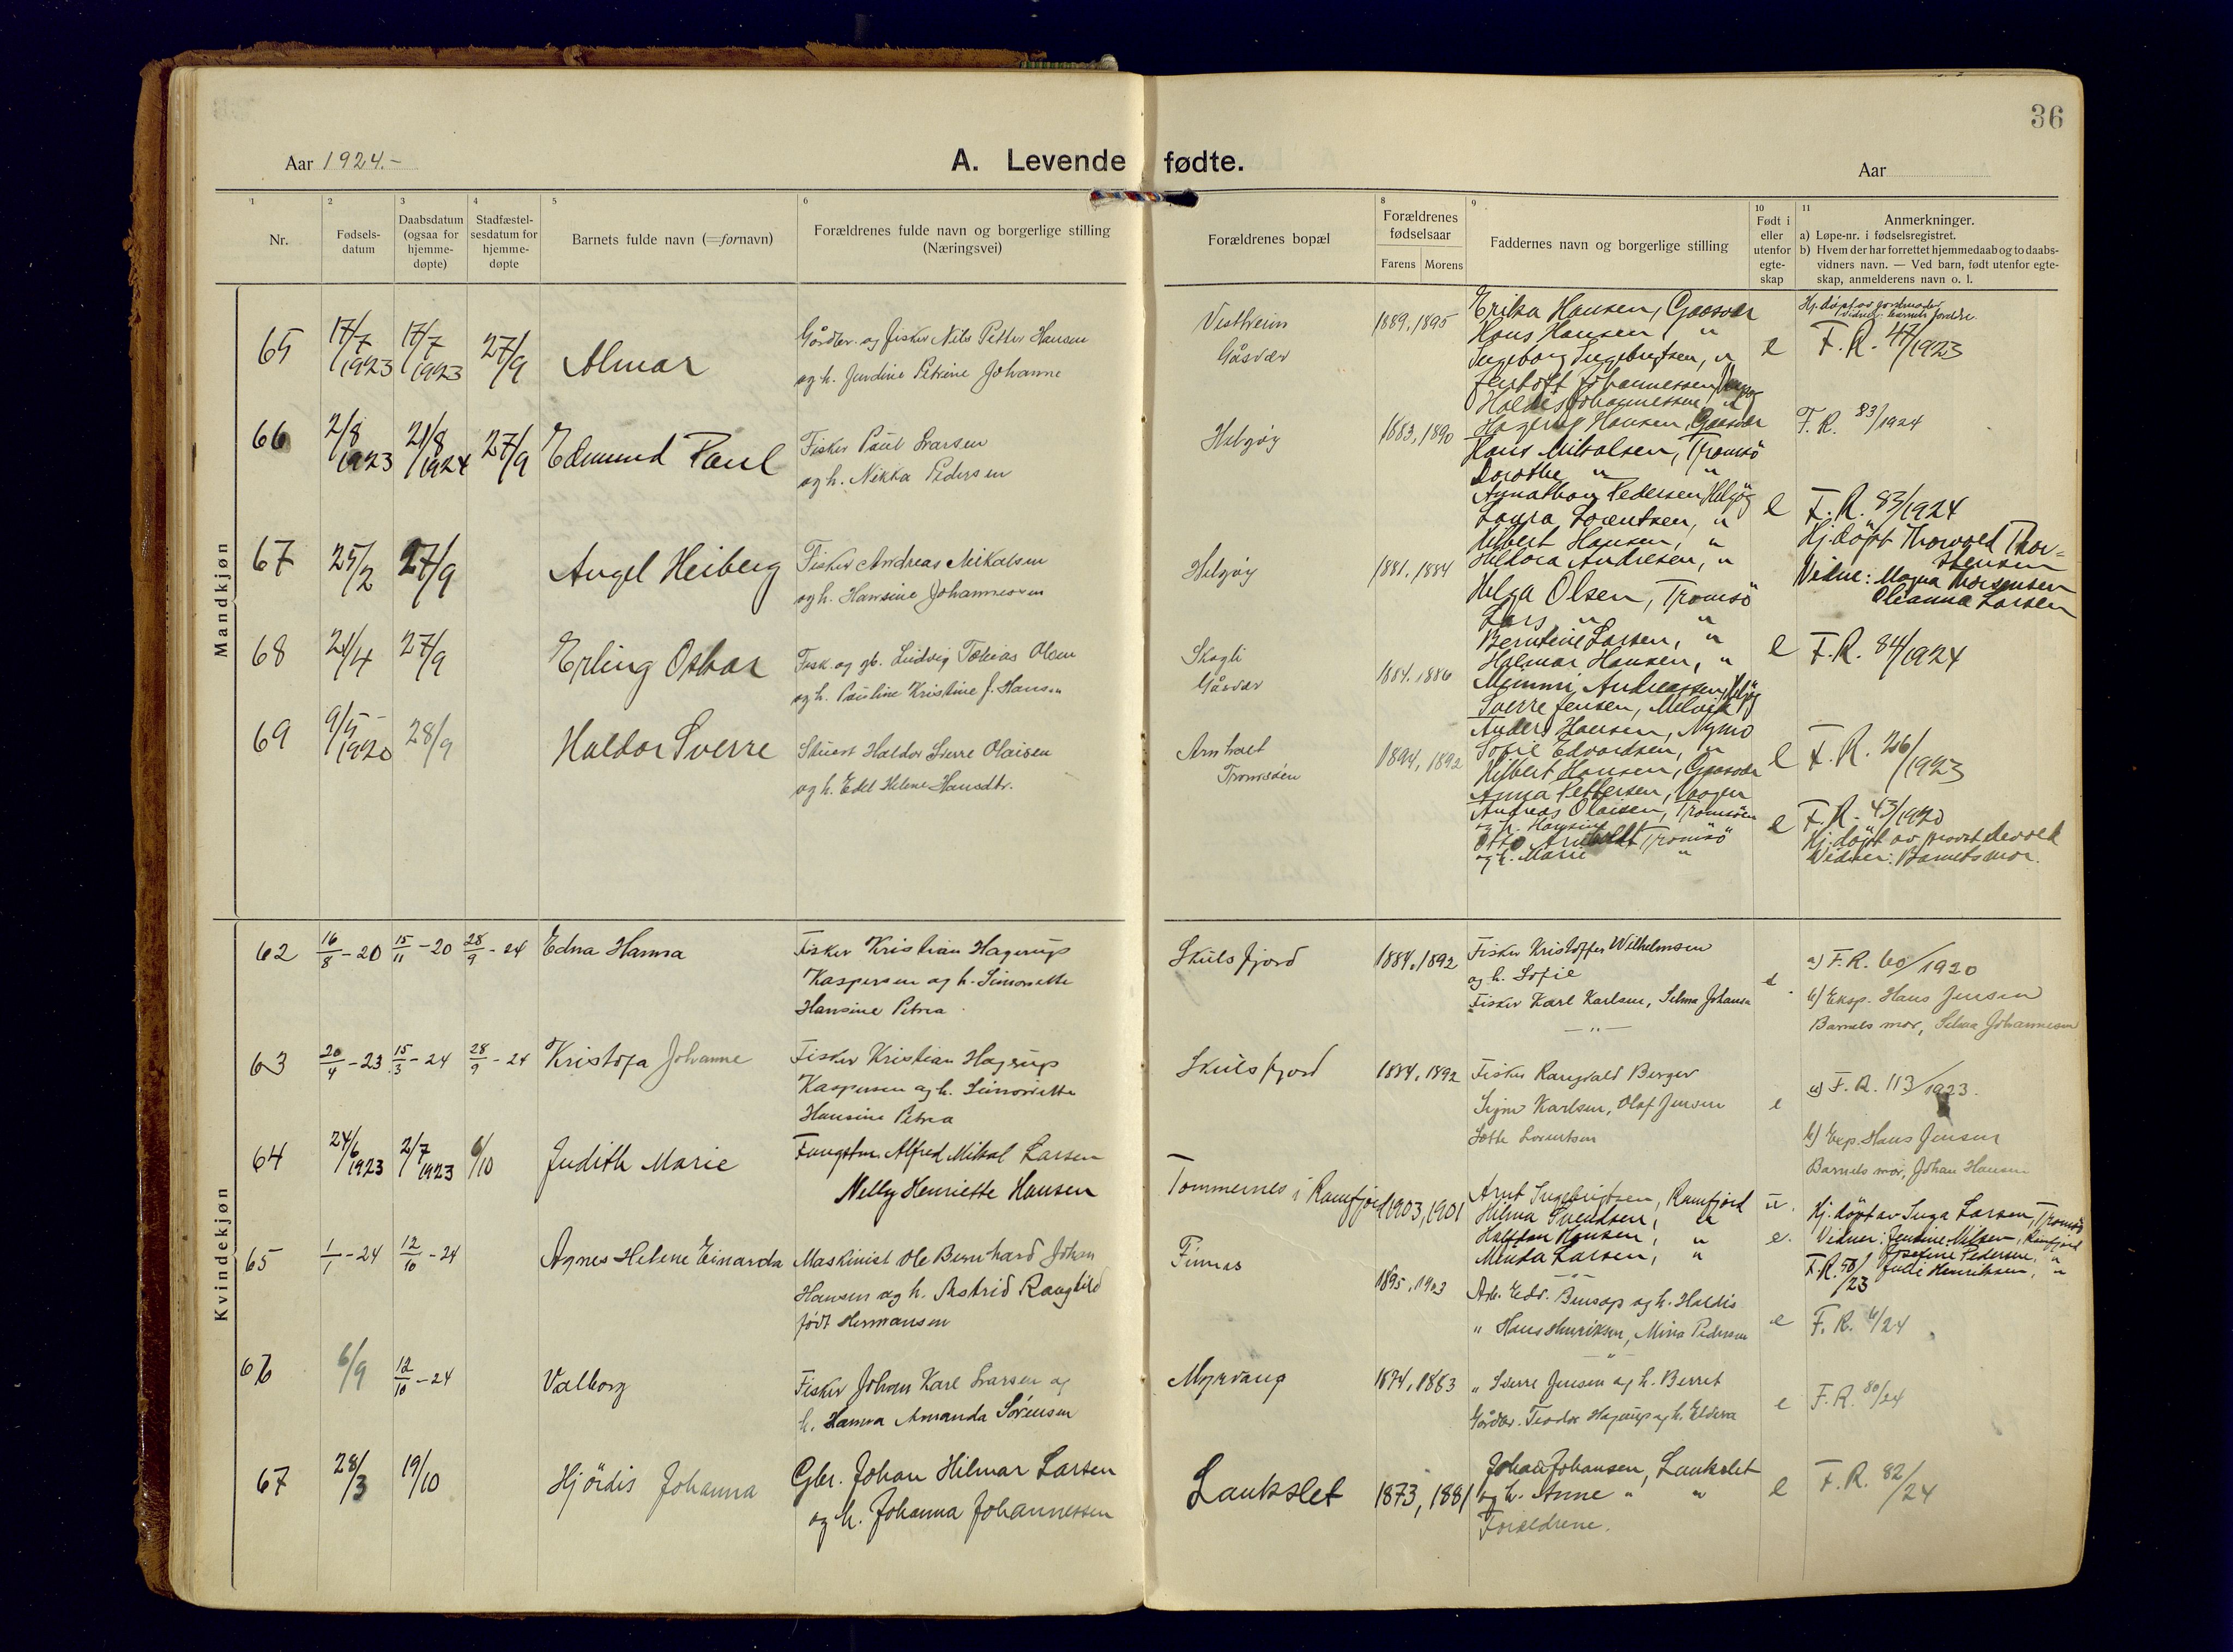 36
Aar 1924.-
A. Levende fødte.
Aar
1
2
3
4
5
6
8
9
10
11
Nr.
Fødsels-
datum
Daabsdatum
(ogsaa for
hjemme-
døpte)
Stadfæstel-
sesdatum for
hjemme-
døpte
Barnets fulde navn (=fornavn)
Forældrenes fulde navn og borgerlige stilling
(Næringsvei)
Forældrenes bopæl
Forældrenes
fødselsaar
Farens
Morens
Faddernes navn og borgerlige stilling
Født i
eller
utenfor
egte-
skap
Anmerkninger.
a) Løpe-nr. i fødselsregistret.
b) Hvem der har forrettet hjemmedaab og to daabs-
vidners navn. — Ved barn, født utenfor egte-
skap, anmelderens navn o. l.
Mandkjøn
65
17/7 1923
17/7 1923
27/9
Almar
Gårdbr. og fisker Nils Petter Hansen
og h. Jendine Petrine Johanne
Vestheim
Gåsvær
1889, 1895
Erika Hansen, Gaasvær
Hans Hansen, "
Ingeborg Ingebrigtsen, "
Jentoft Johannessen,
Haldis Johannessen, "
e
Hj. døpt av jordmoder
Vidner: barnets foreldre
F. R. 47/1923
66
2/8 1923
21/8 1924
27/9
Edmund Paul
Fisker Paul Larsen
og h. Nikka Pedersen
Helgøy
1883, 1890
Hagerup Hansen, Gaasvær
Hans Mikalsen, Tromsö
Dorothe " "
Annathon Pedersen, Helgöy
Laura Lorentsen, "
e
F. R. 83/1924
F. R. 83/1924
Hj. döpt Thorvald Thor-
stensen
Vidne: Magna Thorstensen
Oleanna Larsen
67
25/2
27/9
Angel Heiberg
Fisker Andreas Mikalsen
og h. Hansine Johannessen
Helgøy
1881, 1884
Hilbert Hansen, "
Heldora Andresen, "
Helga Olsen, Tromsö
Lars " "
Berntine Larsen, "
e
F. R. 84/1924
68
21/4
27/9
Erling Oskar
Fisk. og gb. Ludvig Tobias Olsen
og h. Pauline Kristine J. Hansen
Skogli
Gåsvær
1884, 1886
Halmar Hansen, "
Mimmi Andreassen, Helgöy
Sverre Jensen, Melvik
Anders Hansen, Nymo
Sofie Edvardsen, "
e
F. R. 26/1923
69
9/5 1920
28/9
Haldor Sverre
Stuert Haldor Sverre Olaisen
og h. Edel Helene Hansdtr.
Arnholt
Tromsøen
1894, 1892
Hilbert Hansen, Gaasvær
Anna Pettersen, Vaagen
Andreas Olaisen, Tromsöen
og h. Hansine
Otto Arnholdt Tromsö
og h. Marie "
e
F. R. 43/1920
Hj. döpt av provst Devold
Vidner: Barnets mor.
Kvindekjøn
62
16/8 - 20
15/11 - 20
28/9 - 24
Edna Hanna
Fisker Kristian Hagerup
Kaspersen og h. Simonette
Hansine Petrea
Skulsfjord
1884, 1892
Fisker Kristoffer Wilhelmsen
og h. Sofie
Fisker Karl Karlsen, Selma Johansen
— " —
e
a) F. R. 60/1920
b) Eksp. Hans Jensen
Barnets mor, Selma Johannesen
63
20/4 - 23
15/3 - 24
28/9 - 24
Kristofa Johanne
Fisker Kristian Hagerup
Kaspersen og h. Simonette
Hansine Petrea
Skulsfjord
1884, 1892
Fisker Rangvald Berger
Signe Karlsen, Olaf Jensen
Lotte Lorentsen
e
a) F. R. 113/1923.
b) Exp. Hans Jensen
Barnets mor, Johan Hansen
64
24/6 1923
2/7 1923
6/10
Judith Marie
Fangstm. Alfred Mikal Larsen
Nelly Henriette Hansen
Tommernes i Ramfjord
1903, 1901
Arnt Ingebrigtsen, Ramfjord
Hilma Svendsen, "
Halfdan Hansen, "
Minda Larsen, "
u.
Hj. döpt av Inga Larsen, Tromsö
Vidner: Jendine Nilsen, Ramfjord
Josefine Pedersen, "
Julie Henriksen, "
F. R. 50/23
65
1/1 - 24
12/10 - 24
Agnes Helene Einarda
Maskinist Ole Bernhard Johan
Hansen og h. Astrid Ragnhild
født Hermansen
Finnes
1895, 1903
e.
Arb. Edv. Bensap og h. Haldis
" Hans Henriksen, Mina Pedersen
— " —
e
F. R. 6/24
66
6/9
12/10 - 24
Valborg
Fisker Johan Karl Larsen og
h. Hanna Amanda Sørensen
Myrvang
1874, 1883
" Sverre Jensen og h. Berret
Gårdbr. Teodor Hagerup og h. Eldina
e
F. R. 80/24
67
28/3
19/10
Hjördis Johanna
Gbr. Johan Hilmar Larsen
og h. Johanna Johannessen
Laukslet
1873, 1881
Johan Johansen, Laukslet
og h. Anne " "
Forældrene.
e
F. R. 82/24